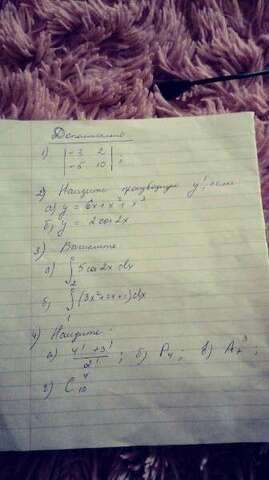 Дополнительно
1) |-3 2|
|-6 10| ;
2) Найдите производную y', если
а) y = 6x+x²+x³
б) y = 2cos2x
3) Вычислите
а) ∫ 5cos2x dx
2
б) ∫ (3x²+2x+1)dx
1
4) Найдите:
а) 4!+3! / 2! ; б) P₄ ; в) A₇³ ;
г) C₁₀⁴